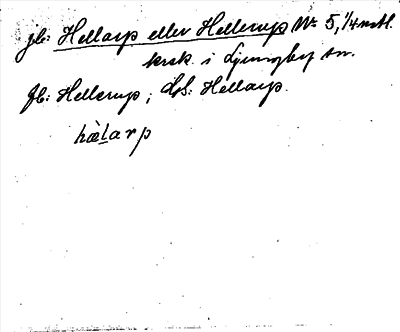 jb: Hellarp eller Hellerup No 5, 1/4 mtl.
krsk. i Ljungby sn.
Jb: Hellerup; Lfs: Hellarp.
hælarp